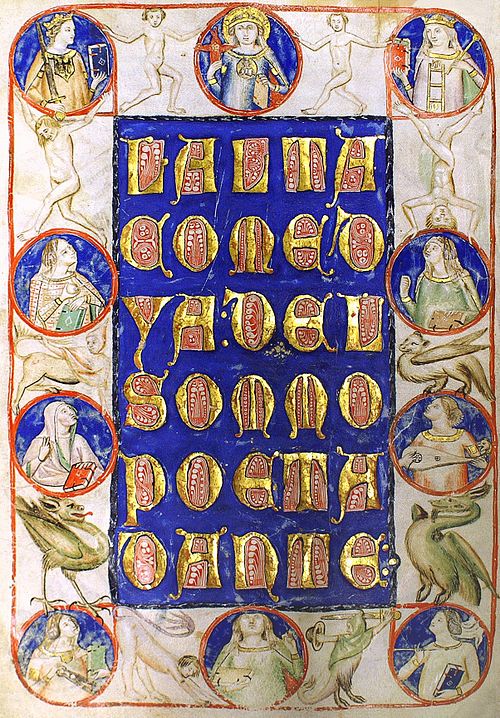 LALMA
COMED
YA·DEL
SOMMO
POETA
DANTE: